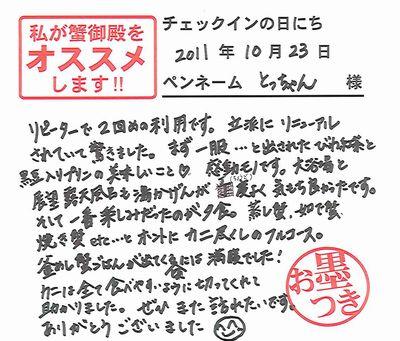 私が蟹御殿を
オススメ
します!!
チェックインの日にち
2011 年 10 月 23 日
ペンネーム とっちゃん 様
リピーターで2回めの利用です。立派にリニューアル
されていて驚きました。まず一服…と出された びわ茶と
黒豆入りプリンの美味しいこと♡ 感動モノです。大浴場と
展望露天風呂も湯かげんが 良く 気もち良かったです。
そして一番楽しみだったのが夕食。蒸し蟹、ゆで蟹
焼き蟹 etc…とホントに カニ尽くしのフルコース。
釜めし蟹ごはんが出てくる には 満腹でした!
カニは全て食べやすいように切ってくれて
助かりました。ぜひ また訪れたいです。
ありがとう ございました
お墨つき